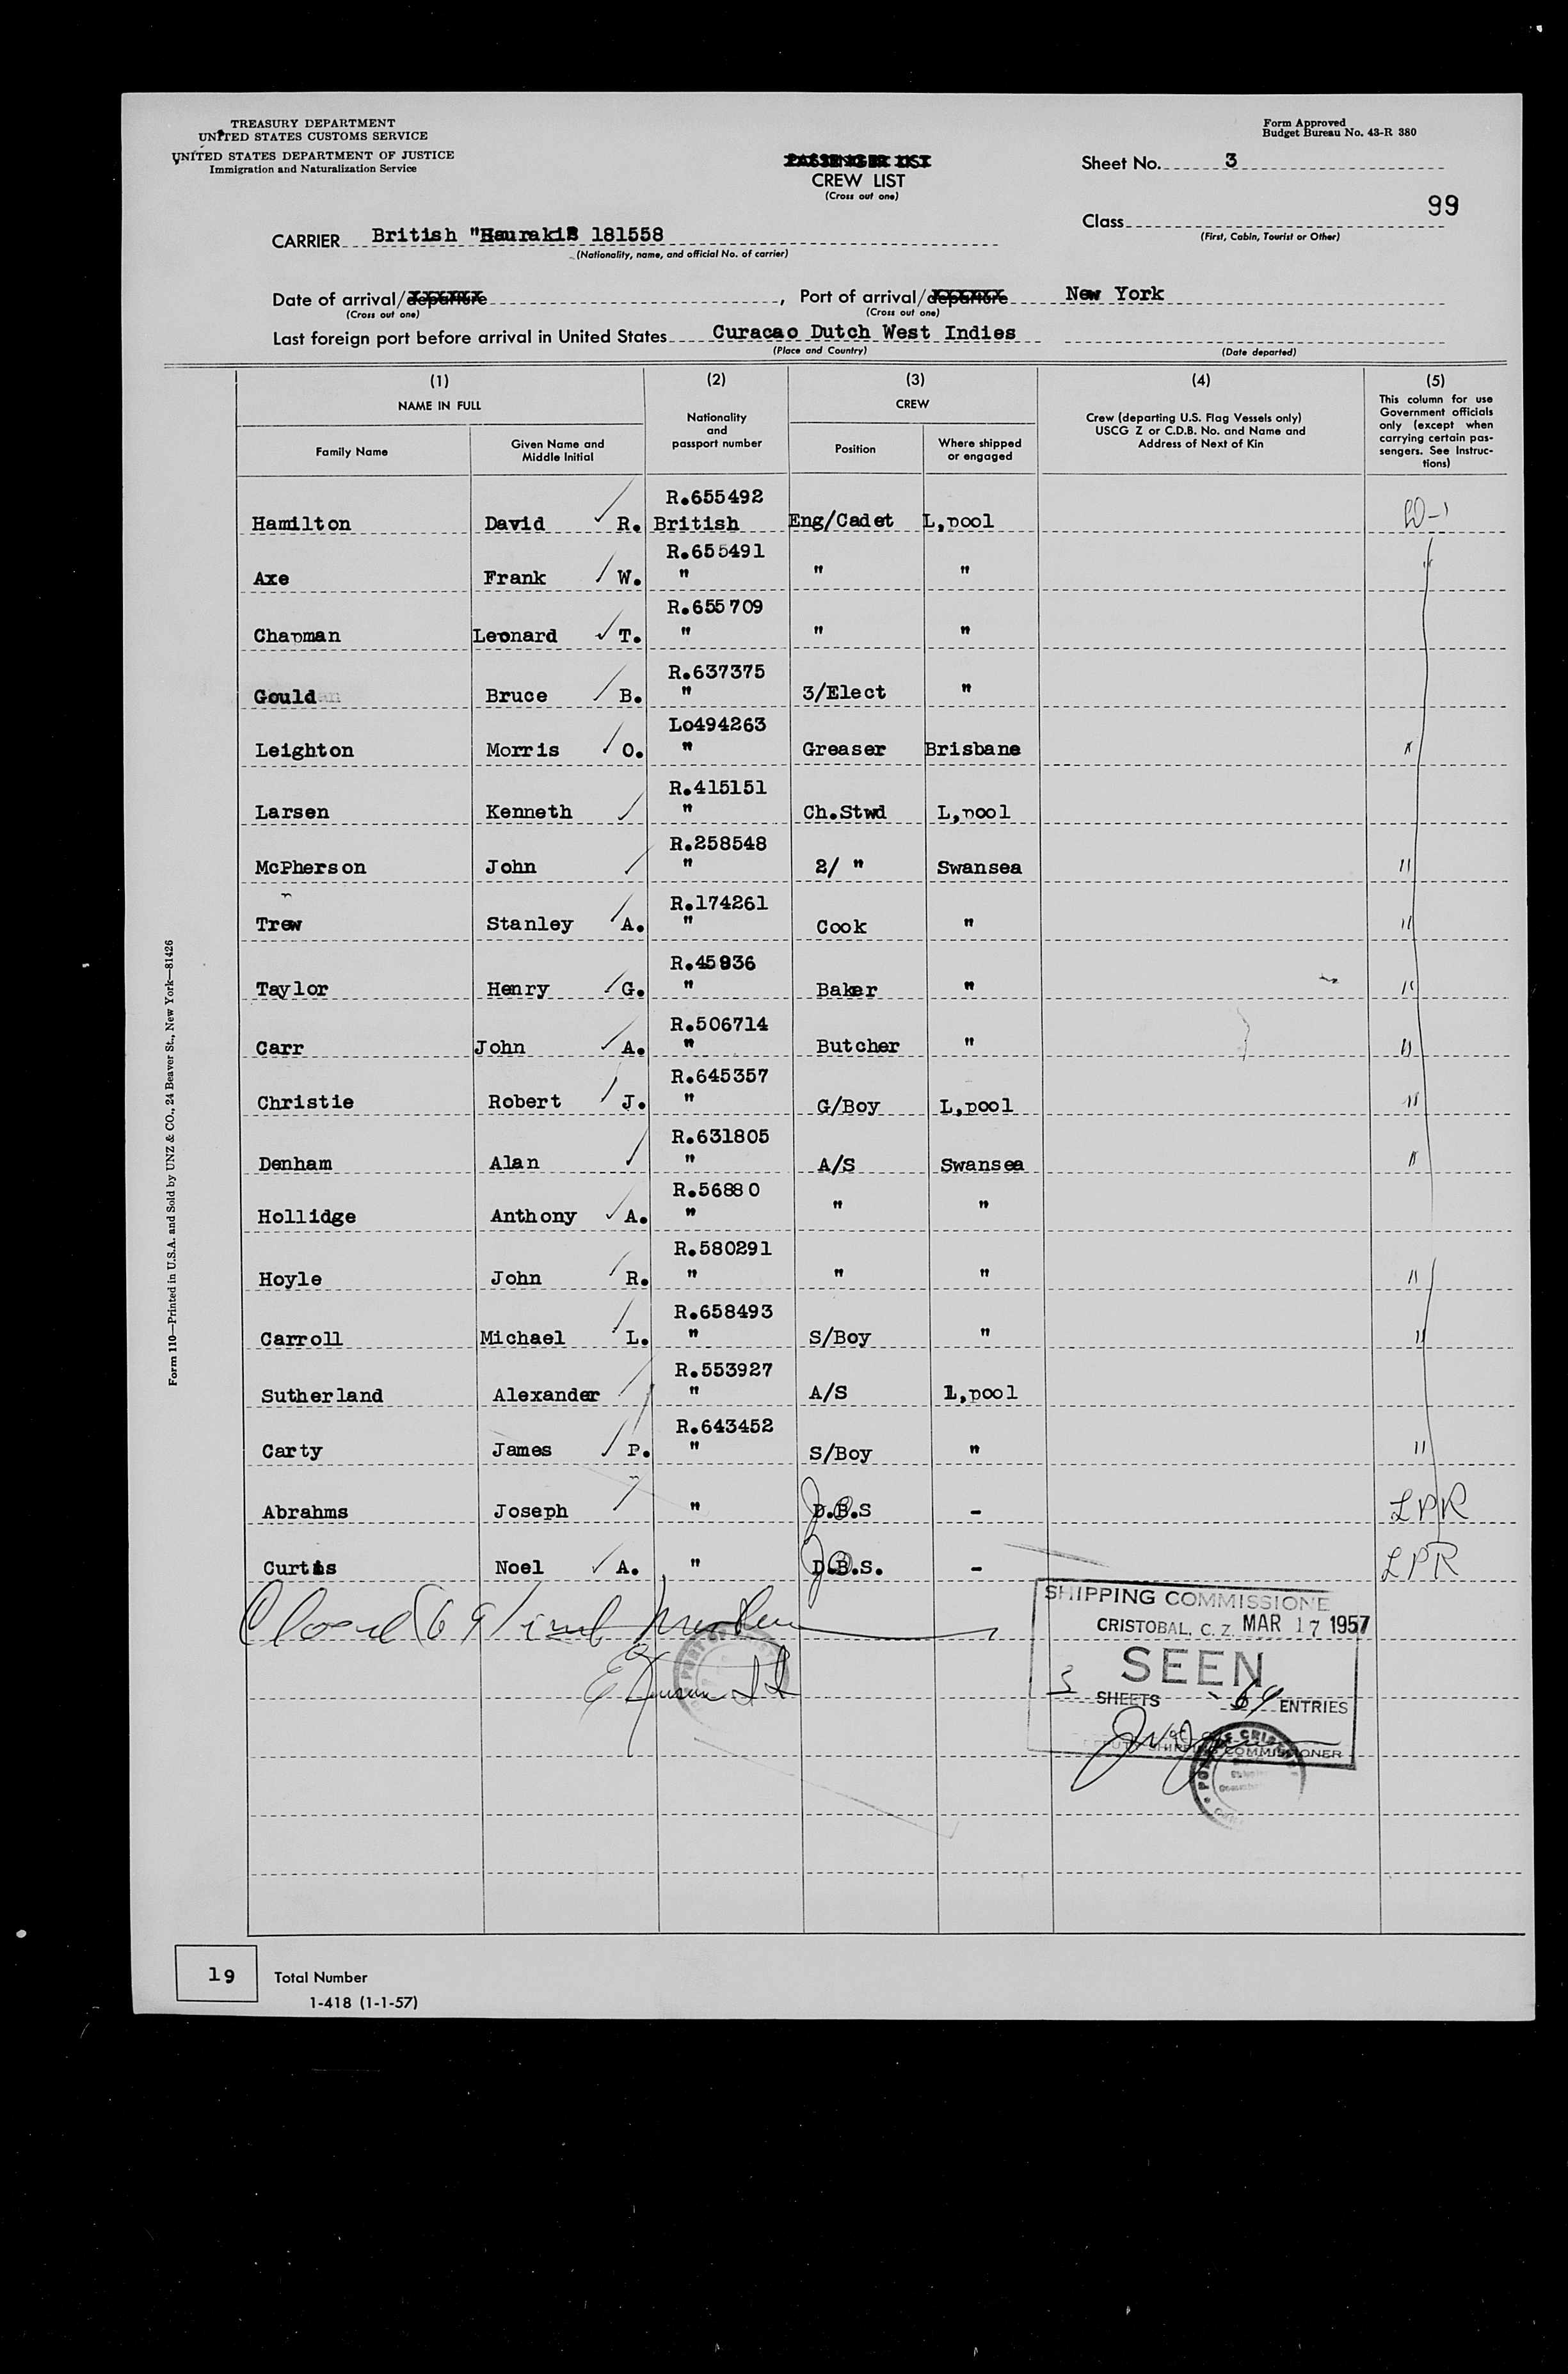 TREASURY DEPARTMENT
UNITED STATES CUSTOMS SERVICE
UNITED STATES DEPARTMENT OF JUSTICE
Immigration and Naturalization Service
Form Approved
Budget Bureau No. 43-R 380
PASSENGER LIST
CREW LIST
(Cross out one)
Sheet No. 3
99
Class
(First, Cabin, Tourist or Other)
CARRIER British "Hauraki" 181558
(Nationality, name, and official No. of carrier)
Date of arrival/departure , Port of arrival/departure New York
(Cross out one) (Cross out one)
Last foreign port before arrival in United States Curacao Dutch West Indies
(Place and Country) (Date departed)
(1) (2) (3) (4) (5)
NAME IN FULL
Family Name
Given Name and Middle Initial
Nationality and passport number
CREW
Position
Where shipped or engaged
Crew (departing U.S. Flag Vessels only) USCG Z or C.D.B. No. and Name and Address of Next of Kin
This column for use Government officials only (except when carrying certain passengers. See Instructions)
R.655492
Hamilton David R. British Eng/Cadet L,pool D-1
R.655491
Axe Frank W. " " " "
R.655709
Chapman Leonard T. " " "
R.637375
Gould Bruce B. " 3/Elect "
Lo494263
Leighton Morris O. " Greaser Brisbane "
R.415151
Larsen Kenneth " Ch.Stwd L,pool
R.258548
McPherson John " 2/ " Swansea "
R.174261
Trew Stanley A. " Cook " "
R.45936
Taylor Henry G. " Baker " "
R.506714
Carr John A. " Butcher " "
R.645357
Christie Robert J. " G/Boy L,pool "
R.631805
Denham Alan " A/S Swansea "
R.56880
Hollidge Anthony A. " " "
R.580291
Hoyle John R. " " " "
R.658493
Carroll Michael L. " S/Boy " "
R.553927
Sutherland Alexander " A/S L,pool
R.643452
Carty James P. " S/Boy " "
Abrahms Joseph " D.B.S - LPR
Curtis Noel A. " D.B.S. - LPR
Closed 69
SHIPPING COMMISSIONE
CRISTOBAL, C. Z. MAR 17 1957
SEEN
3 SHEETS 69 ENTRIES
DEPUTY SHIPPING COMMISSIONER
19 Total Number
1-418 (1-1-57)
Form 110—Printed in U.S.A. and Sold by UNZ & CO., 24 Beaver St., New York—81426